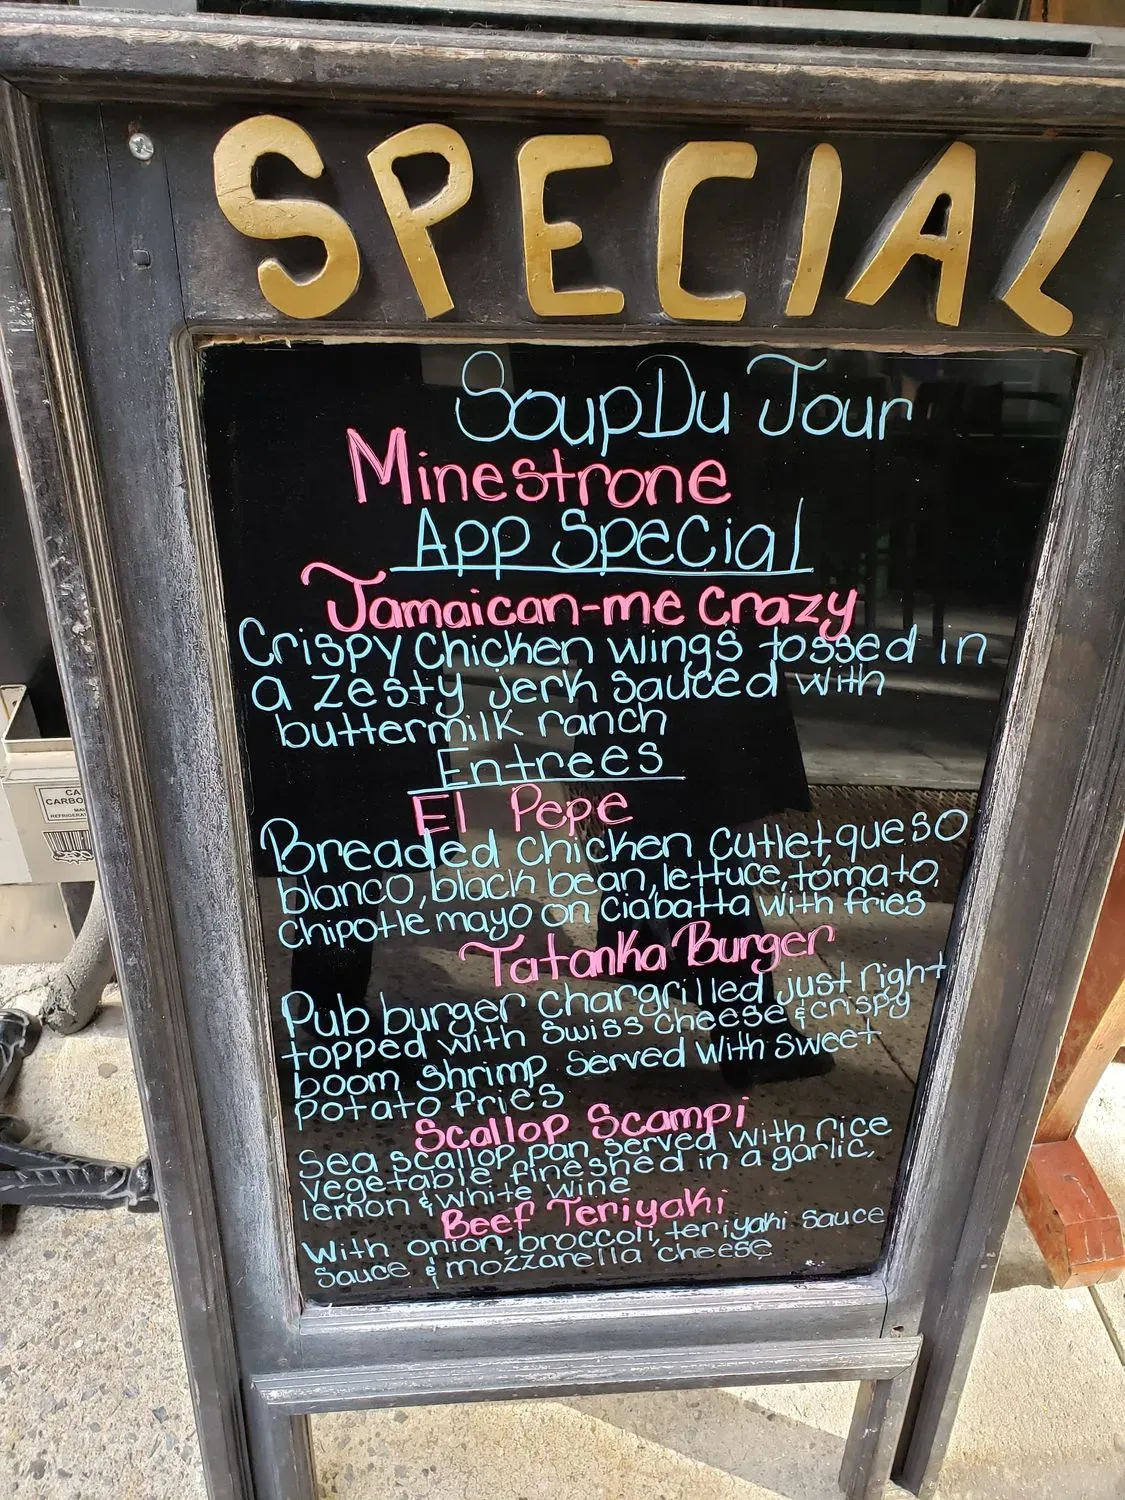 SPECIAL
Soup Du Jour
Minestrone
App Special
Jamaican-me Crazy
Crispy Chicken wings tossed in
a zesty jerk sauced with
buttermilk ranch
Entrees
El Pepe
Breaded chicken cutlet, queso
blanco, black bean, lettuce, tomato,
chipotle mayo on ciabatta with fries
Tatanka Burger
Pub burger chargrilled just right
topped with swiss cheese & crispy
boom shrimp served with sweet
potato fries
Scallop Scampi
Sea scallop pan served with rice
vegetable, fineshed in a garlic,
lemon & white wine
Beef Teriyaki
With onion, broccoli, teriyaki sauce
sauce & mozzarella cheese
CA
CARBO